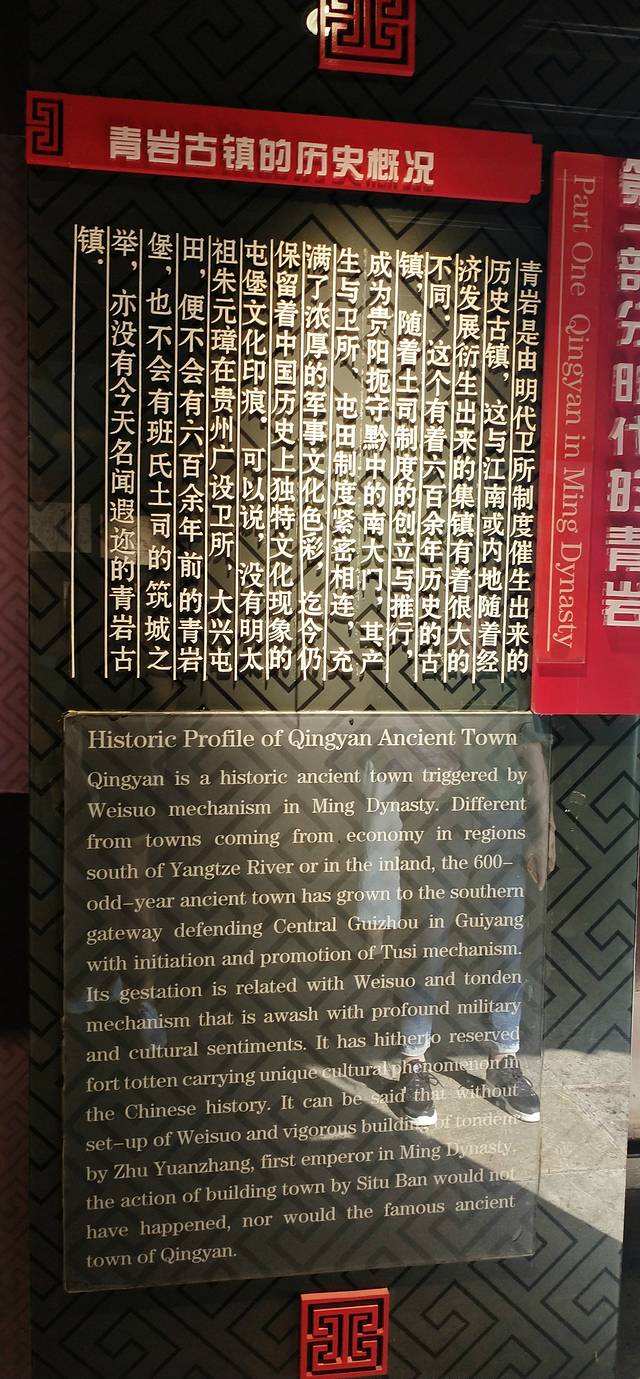 青岩古镇的历史概况
青岩是由明代卫所制度催生出来的
历史古镇，这与江南或内地随着经
济发展衍生出来的集镇有着很大的
不同。这个有着六百余年历史的古
镇，随着土司制度的创立与推行，
成为贵阳扼守黔中的南大门，其产
生与卫所、屯田制度紧密相连，充
满了浓厚的军事文化色彩，迄今仍
保留着中国历史上独特文化现象的
屯堡文化印痕。可以说，没有明太
祖朱元璋在贵州广设卫所，大兴屯
田，便不会有六百余年前的青岩
堡，也不会有班氏土司的筑城之
举，亦没有今天名闻遐迩的青岩古
镇。
第一部分 明代的青岩
Part One Qingyan in Ming Dynasty
Historic Profile of Qingyan Ancient Town
Qingyan is a historic ancient town triggered by
Weisuo mechanism in Ming Dynasty. Different
from towns coming from economy in regions
south of Yangtze River or in the inland, the 600-
odd-year ancient town has grown to the southern
gateway defending Central Guizhou in Guiyang
with initiation and promotion of Tusi mechanism.
Its gestation is related with Weisuo and tonden
mechanism that is awash with profound military
and cultural sentiments. It has hitherto reserved
fort totten carrying unique cultural phenomenon in
the Chinese history. It can be said that without
set-up of Weisuo and vigorous building of tondem
by Zhu Yuanzhang, first emperor in Ming Dynasty.
the action of building town by Situ Ban would not
have happened, nor would the famous ancient
town of Qingyan.